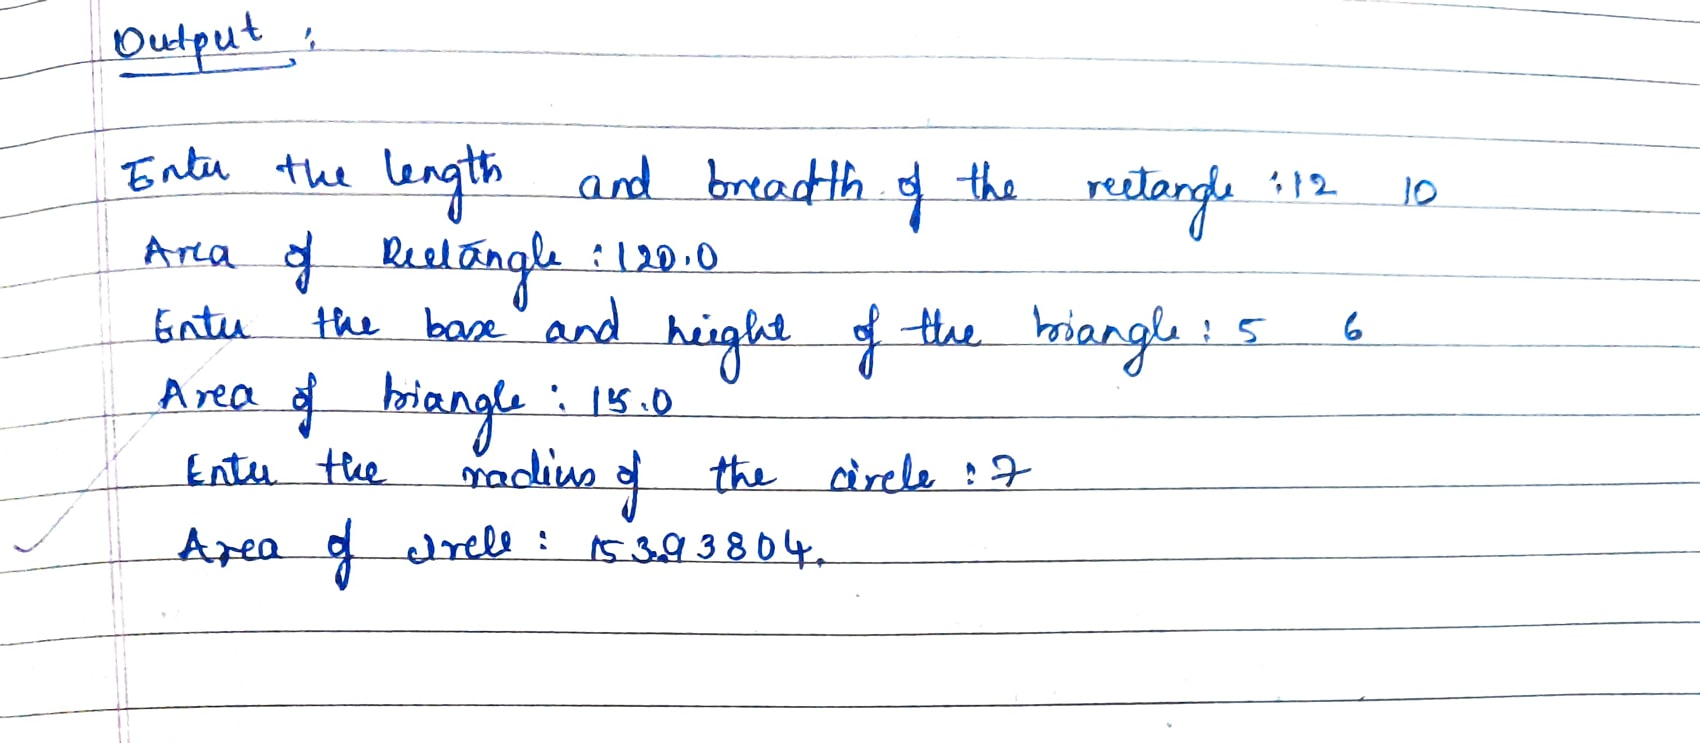 Output :
Enter the length and breadth of the rectangle : 12 10
Area of Rectangle : 120.0
Enter the base and height of the triangle : 5 6
Area of triangle : 15.0
Enter the radius of the circle : 7
Area of circle : 153.93804.